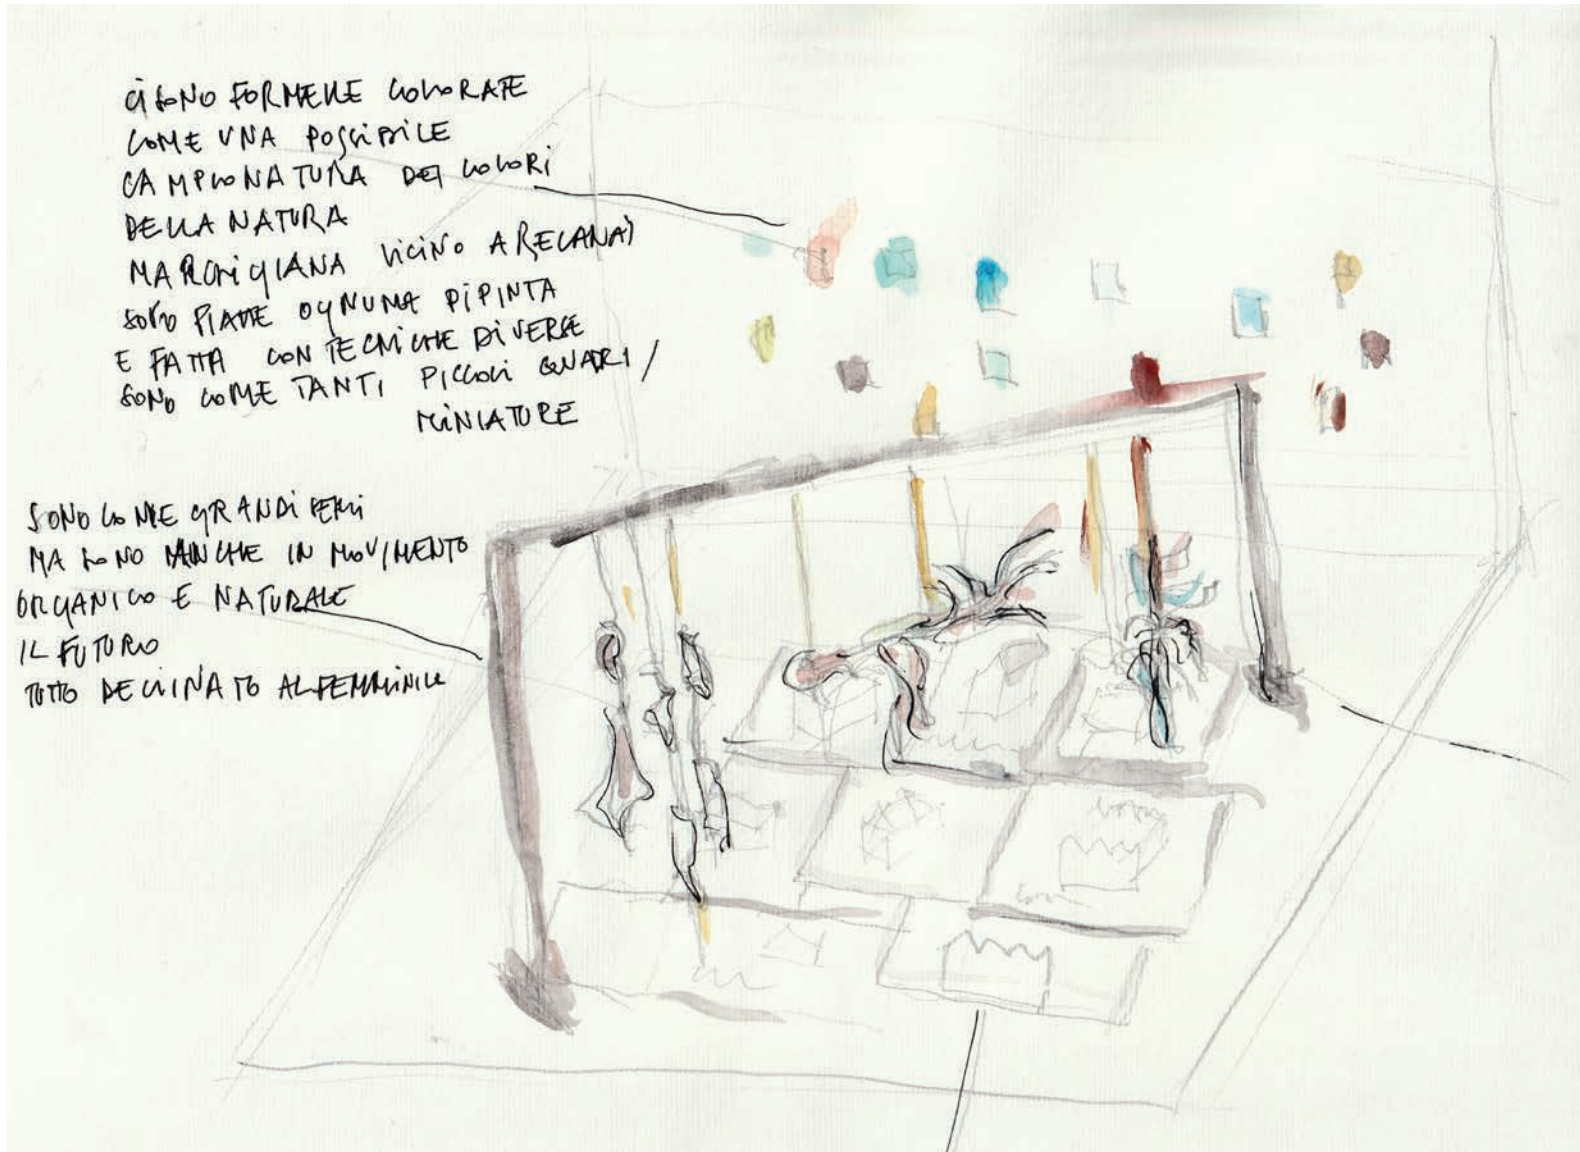 CI SONO FORMELLE COLORATE
COME UNA POSSIBILE
CAMPIONATURA DEI COLORI
DELLA NATURA
MARCHIGIANA VICINO A RECANATI
SONO PIATTE OGNUNA DIPINTA
E FATTA CON TECNICHE DIVERSE
SONO COME TANTI PICCOLI QUADRI/
MINIATURE
SONO COME GRANDI SEMI
MA SONO ANCHE IN MOVIMENTO
ORGANICO E NATURALE
IL FUTURO
TUTTO DECLINATO AL FEMMINILE